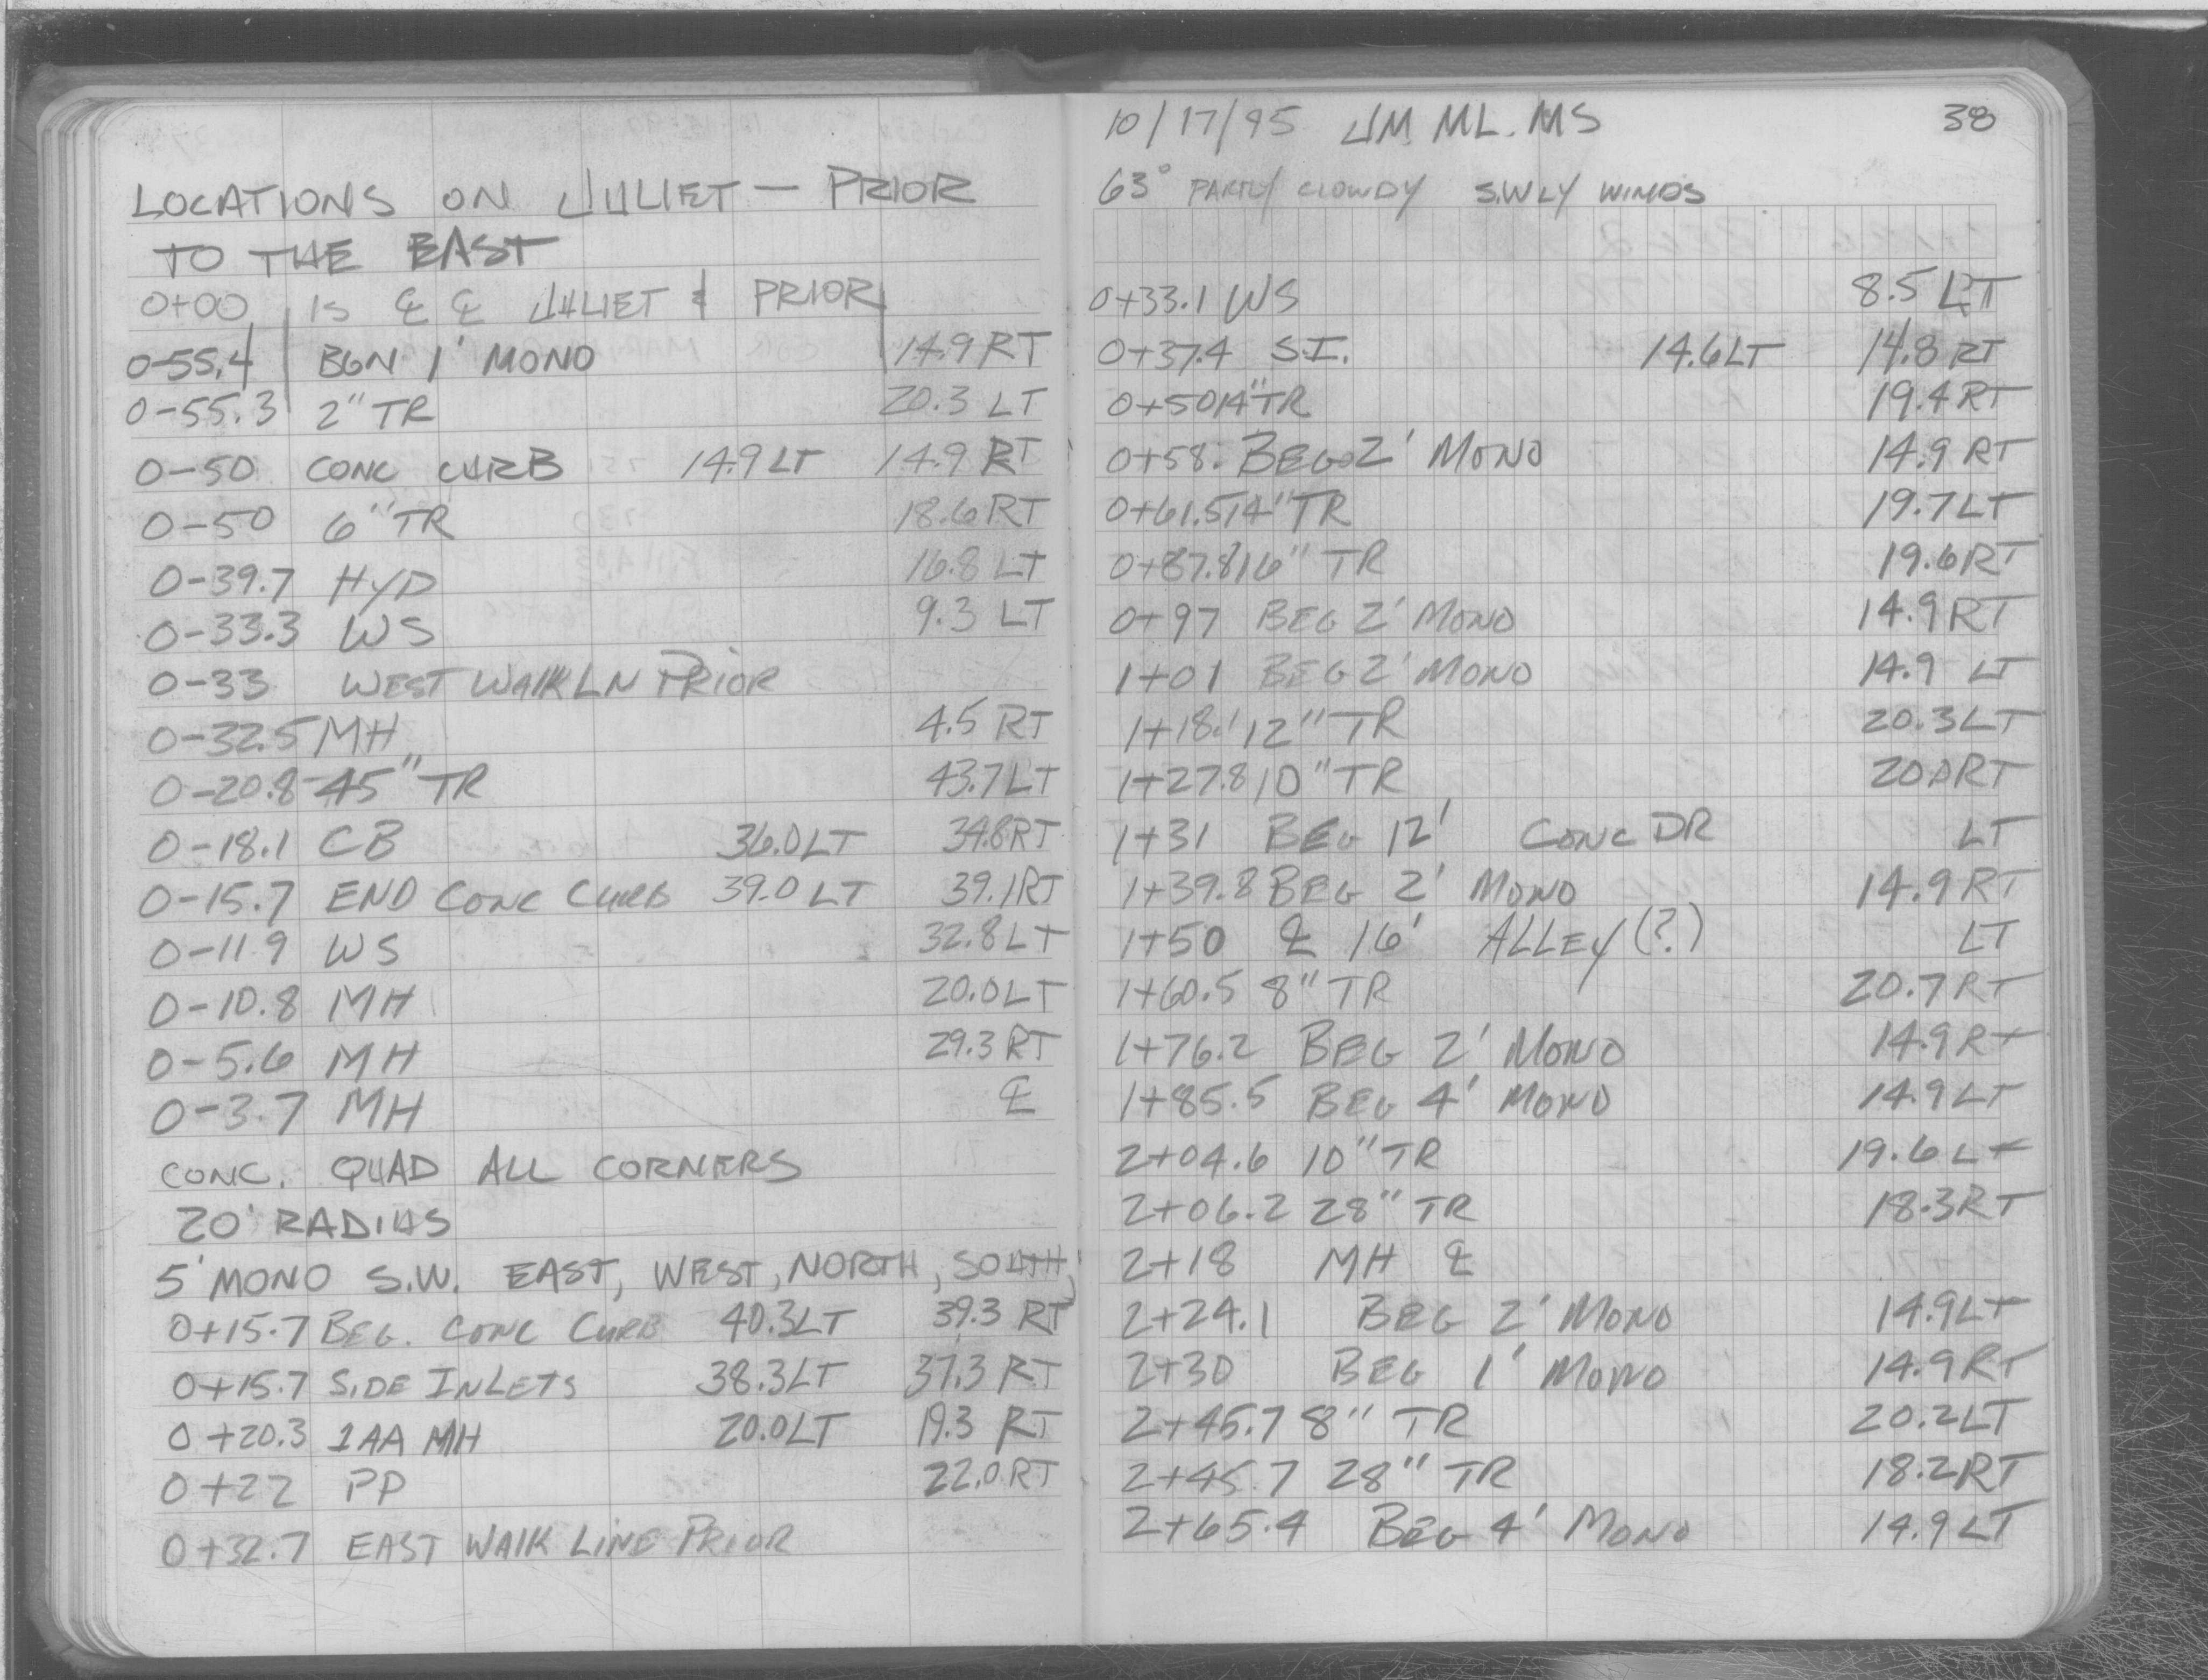 LOCATIONS ON JULIET — PRIOR
TO THE EAST
0+00 IS ℄ ℄ JULIET & PRIOR
0-55.4 BGN 1' MONO 14.9 RT
0-55.3 2" TR 20.3 LT
0-50 CONC CURB 14.9 LT 14.9 RT
0-50 6" TR 18.6 RT
0-39.7 HYD 16.8 LT
0-33.3 WS 9.3 LT
0-33 WEST WALK LN PRIOR
0-32.5 MH 4.5 RT
0-20.8 45" TR 43.7 LT
0-18.1 CB 36.0 LT 34.8 RT
0-15.7 END CONC CURB 39.0 LT 39.1 RT
0-11.9 WS 32.8 LT
0-10.8 MH 20.0 LT
0-5.6 MH 29.3 RT
0-3.7 MH ℄
CONC. QUAD ALL CORNERS
20' RADIUS
5' MONO S.W. EAST, WEST, NORTH, SOUTH,
0+15.7 BEG. CONC CURB 40.3 LT 39.3 RT
0+15.7 SIDE INLETS 38.3 LT 37.3 RT
0+20.3 1AA MH 20.0 LT 19.3 RT
0+22 PP 22.0 RT
0+32.7 EAST WALK LINE PRIOR
10/17/95 JM. ML. MS 38
63° PARTLY CLOWDY S.WLY WINDS
0+33.1 WS 8.5 LT
0+37.4 S.I. 14.6 LT 14.8 RT
0+50 14" TR 19.4 RT
0+58. BEG 2' MONO 14.9 RT
0+61.5 14" TR 19.7 LT
0+87.8 16" TR 19.6 RT
0+97 BEG 2' MONO 14.9 RT
1+01 BEG 2' MONO 14.9 LT
1+18.1 12" TR 20.3 LT
1+27.8 10" TR 20.0 RT
1+31 BEG 12' CONC DR LT
1+39.8 BEG 2' MONO 14.9 RT
1+50 ℄ 16' ALLEY (?) LT
1+60.5 8" TR 20.7 RT
1+76.2 BEG 2' MONO 14.9 RT
1+85.5 BEG 4' MONO 14.9 LT
2+04.6 10" TR 19.6 LT
2+06.2 28" TR 18.3 RT
2+18 MH ℄
2+24.1 BEG 2' MONO 14.9 LT
2+30 BEG 1' MONO 14.9 RT
2+45.7 8" TR 20.2 LT
2+45.7 28" TR 18.2 RT
2+65.4 BEG 4' MONO 14.9 LT